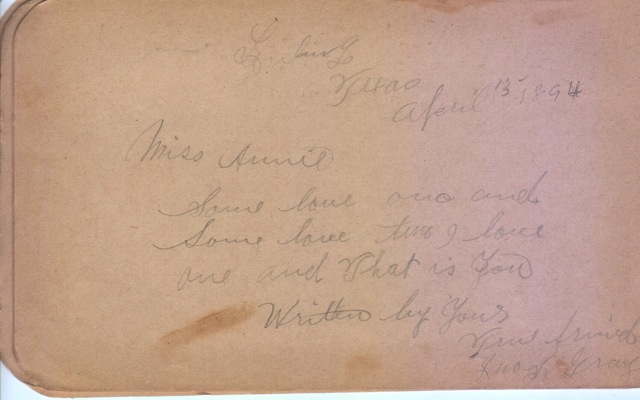 Luling
Texas
April 13 1894
Miss Annie
Some love one and
Some love two I love
one and That is You
Written by Your
True friend
Gray